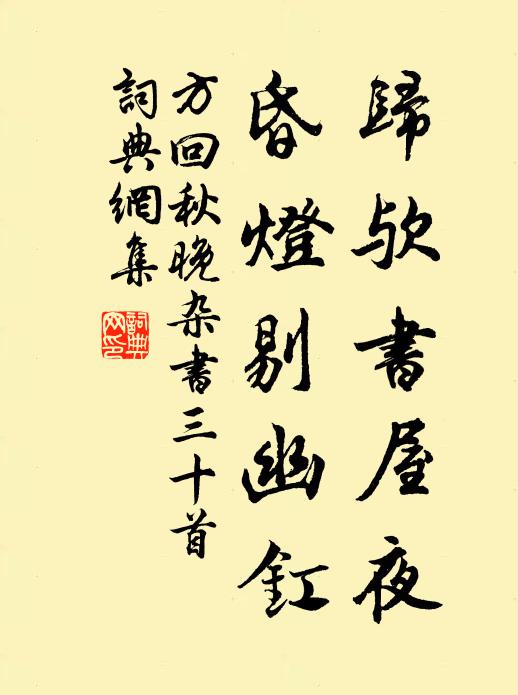 歸欤書屋夜
昏燈剔幽釭
方回秋晚杂書三十首
詞典網集
詞典網印